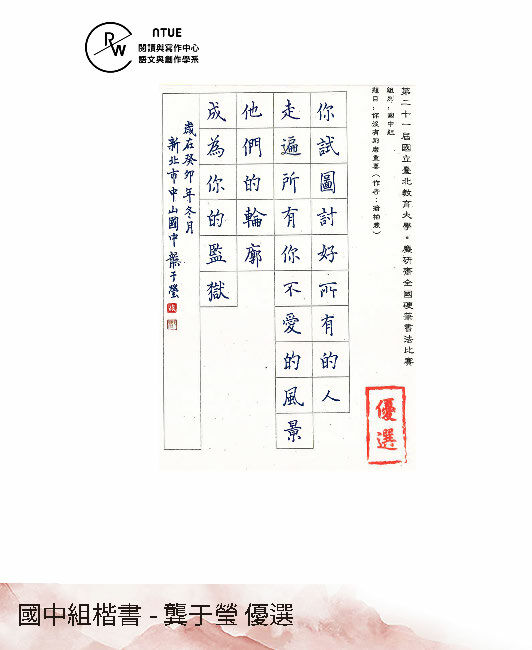 NTUE
RW
閱讀與寫作中心
語文與創作學系
第二十一屆國立臺北教育大學。麋研齋全國硬筆書法比賽
組別：國中組
題目：你沒有那麼重要（作者：潘柏霖）
你試圖討好所有的人
走遍所有你不愛的風景
他們的輪廓
成為你的監獄
歲在癸卯年冬月
新北市中山國中 龔于瑩
優選
國中組楷書 - 龔于瑩 優選